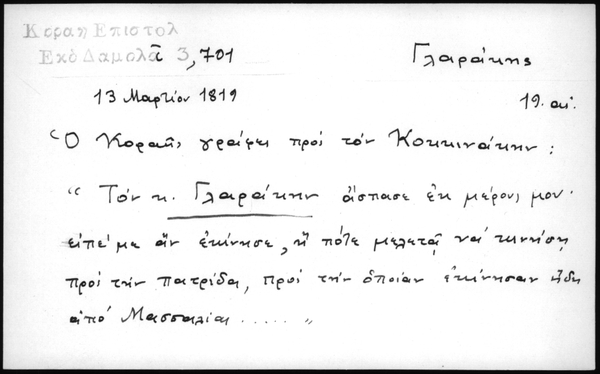 Κοραη Επιστολ
Εκδ Δαμαλᾶ 3,701
Γλαράκης
13 Μαρτίου 1819
19. αἰ.
Ὁ Κοραῆς γράφει πρὸς τὸν Κοκκινάκην :
"Τὸν κ. Γλαράκην ἄσπασε ἐκ μέρους μου·
εἰπέ με ἂν ἐκίνησε, ἢ πότε μελετᾷ νὰ κινήσῃ
πρὸς τὴν πατρίδα, πρὸς τὴν ὁποίαν ἐκίνησαν ἤδη
ἀπὸ Μασσαλίας ..... "